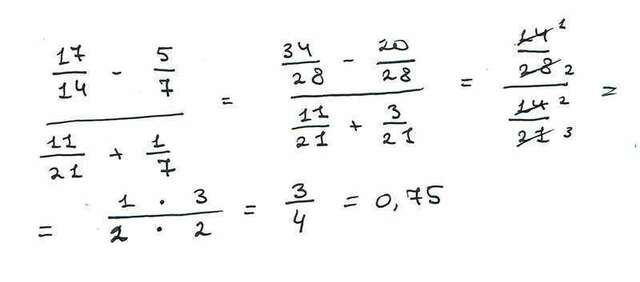 (17/14 - 5/7) / (11/21 + 1/7) = (34/28 - 20/28) / (11/21 + 3/21) = (14/28 1/2) / (14/21 2/3) =
= (1 · 3) / (2 · 2) = 3/4 = 0,75